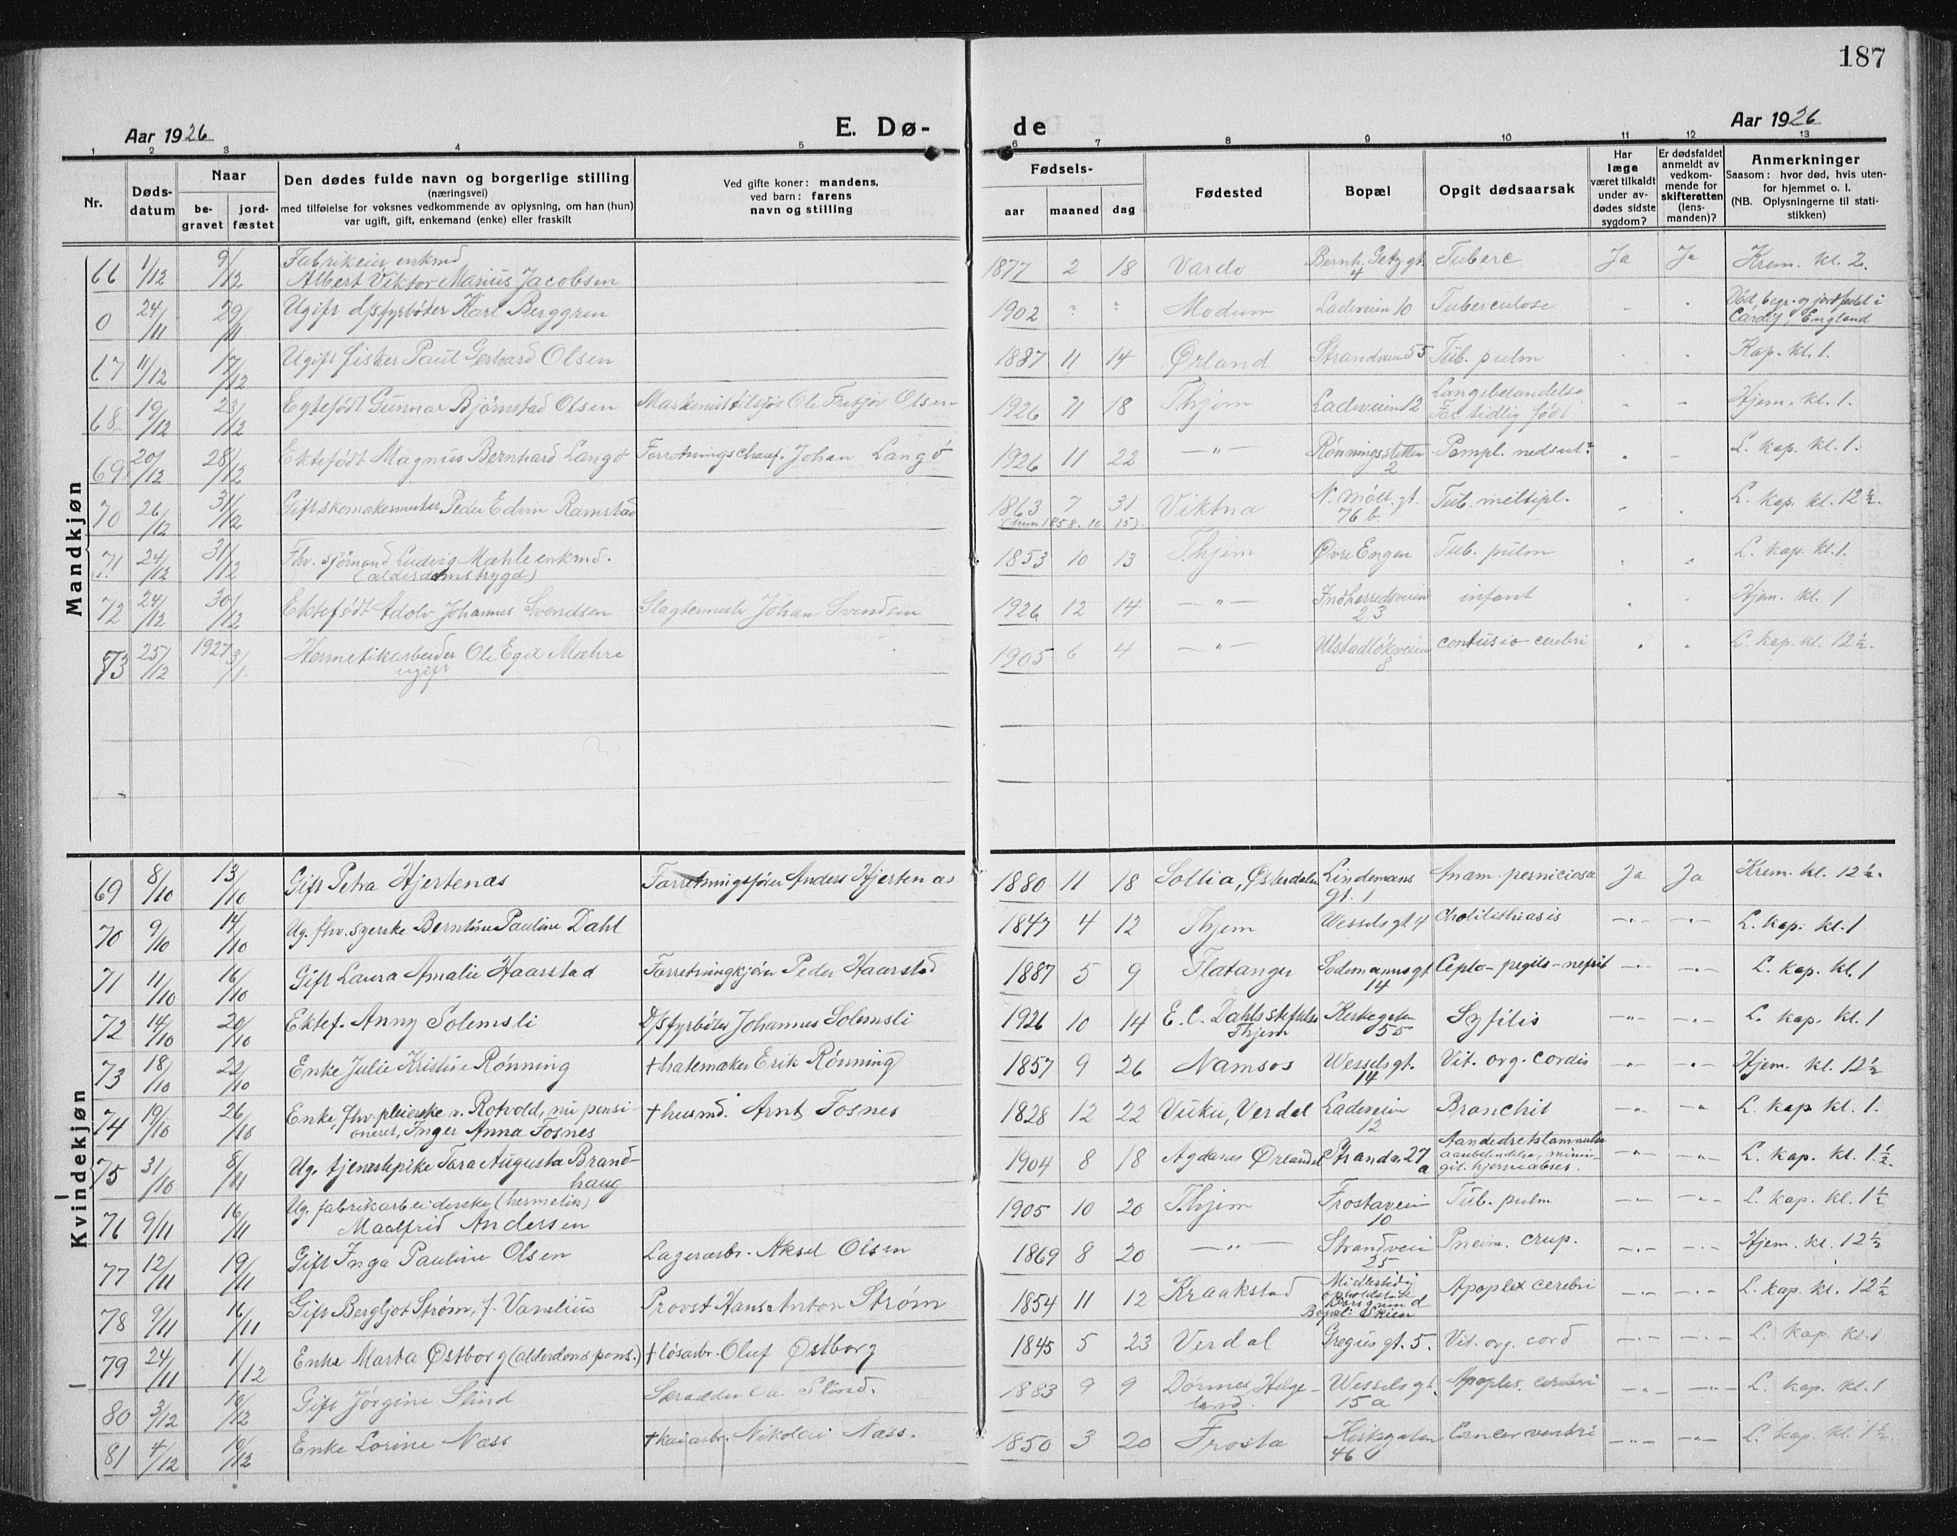 187
Aar 1926
E. Dø- de
Aar 1926
1 2 3 4 5 6 7 8 9 10 11 12 13
Nr.
Døds-
datum
Naar
be-
gravet
jord-
fæstet
Den dødes fulde navn og borgerlige stilling
(næringsvei)
med tilføielse for voksnes vedkommende av oplysning, om han (hun)
var ugift, gift, enkemand (enke) eller fraskilt
Ved gifte koner: mandens,
ved barn: farens
navn og stilling
Fødsels-
aar maaned dag
Fødested
Bopæl
Opgit dødsaarsak
Har
læge
været tilkaldt
under av-
dødes sidste
sygdom?
Er dødsfaldet
anmeldt av
vedkom-
mende for
skifteretten
(lens-
manden)?
Anmerkninger
Saasom: hvor død, hvis uten-
for hjemmet o. l.
(NB. Oplysningerne til stati-
stikken)
Mandkjøn
66 1/12 9/12 Fabrikeier, enkmd
Albert Viktor Marius Jacobsen 1877 2 18 Vardø Bernh. Getz gt. 4 Tuberc Ja Ja Krem. kl. 2.
0 24/11 29/11 Ugift d/s fyrbøter Karl Berggren 1902 " " Modum Ladeveien 10 Tuberculose " " Død, begr. og jordfæstet i
Cardif, England
67 11/12 17/12 Ugift fisker Paul Gerhard Olsen 1887 11 14 Ørland Strandveien 55 Tub. pulm " " Kap. kl. 1.
68 19/12 23/12 Egtefødt Gunnar Bjørnstad Olsen Ole Fretjov Olsen 1926 11 18 Thjem Ladeveien 12
For tidlig født " " Hjem. kl. 1.
69 20/12 28/12 Ektefødt Magnus Bernhard Langø Forretningschauf. Johan Langø 1926 11 22 —"— Rønningsletten
2 " " L. kap. kl. 1.
70 26/12 31/12 Gift skomakermester Peder Edvin Ramstad 1863 7 31 Viktna N. Møll. gt.
76 b. Tub. meltipl. " " L. kap. kl. 12 ½.
(hun 1858. 10. 15).
71 24/12 31/12 Fhv. sjømand Ludvig Mæhle enkmd.
(alderdomstrygd) 1853 10 13 Thjem Øvre Engen Tub. pulm " " L. kap. kl. 1.
72 24/12 30/12 Ektefødt Adolv Johannes Svendsen Slagtermester Johan Svendsen 1926 12 14 —"— Indherredsveien
23 infant " " Hjem. kl. 1
73 25/12 1927 3/1 Hermetikarbeider Ole Egil Mæhre
ugift 1905 6 4 —"— Ulstadløkveien
8 contusio cerebri " " L. kap. kl. 12 ½.
Kvindekjøn
69 8/10 13/10 Gift Petra Hjertenæs Forretningsfører Anders Hjertenæs 1880 11 18 Sollia, Østerdalen Lindemans
gt. 1 Anæm. perniciosa Ja Ja Krem. kl. 12 ½.
70 9/10 14/10 Ug. fhv. syerske Berntine Pauline Dahl 1843 4 12 Thjem Wessels gt 4 Cholilithiasis —"— —"— L. kap. kl. 1
71 11/10 16/10 Gift Laura Amalie Haarstad Peder Haarstad 1887 5 9 Flatanger Sodemanns gt.
14 —"— —"— L. kap. kl. 1
72 14/10 20/10 Ektef. Anny Solemsli D/S fyrbøter Johannes Solemsli 1926 10 14 E. C. Dahls stiftelse
Thjem Kirkegaten
55 Syfilis —"— —"— L. kap. kl. 1
73 18/10 22/10 Enke Julie Kristine Rønning † hatemaker Erik Rønning 1857 9 26 Namsos Wessels gt.
14 Vit. org. cordis —"— —"— Hjem. kl. 12 ½
74 19/10 26/10 Enke, fhv. pleierske v. Rotvold, nu pensi-
oneret, Inger Anna Fosnes † husmd. Arnt Fosnes 1828 12 22 Vuku, Verdal Ladeveien
12 Bronchit —"— —"— L. kap kl. 1.
75 31/10 8/11 Ug. tjenestepike Tora Augusta Brand-
haug 1904 8 18 Agdenes Ørlandet Strandv. 27
a Aandedrætslammelse
—"— —"— L. kap. kl. 1 ½.
76 9/11 16/11 Ug. fabrikarbeiderske (hermetik)
Maalfrid Andersen 1905 10 20 Thjem Frostaveien
10 Tub. pulm —"— —"— L. kap. kl. 1 ½
77 12/11 19/11 Gift Inga Pauline Olsen Lagerarbr. Aksel Olsen 1869 8 20 —"— Strandveien
25 Pneum. crup. —"— —"— Hjem. kl. 12 ½
78 9/11 16/11 Gift Bergljot Strøm, f. Vanelius Provst Hans Anton Strøm 1854 11 12 Kraakstad Midlertidig
opholdssted
Porsgrund
Bopæl: Skien Apoplex cerebri —"— —"— L. kap. kl. 12 ½
79 24/11 1/12 Enke Marta Østborg (alderdoms pens.) † løsarbr. Oluf Østborg 1845 5 23 Verdal Gregus gt. 5. Vit. org. cord —"— —"— L. kap. kl. 1
80 3/12 10/12 Gift Jørgine Slind Skrædder Slind. 1883 9 9 Dønnes, Helge-
land. Wessels gt.
15 a Apoplex. cerebri —"— —"— L. kap. kl. 1
81 4/12 10/12 Enke Lorine Næss † kaiarbr. Nikolai Næss. 1850 3 20 Frosta Kirkegaten
46 Cancer ventri —"— —"— L. kap. kl. 1 ½